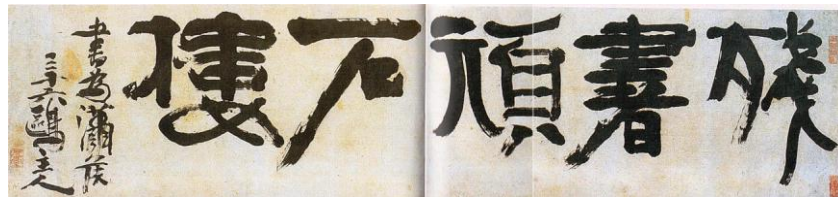 殘書頑石樓
書為
三十六鷗主人